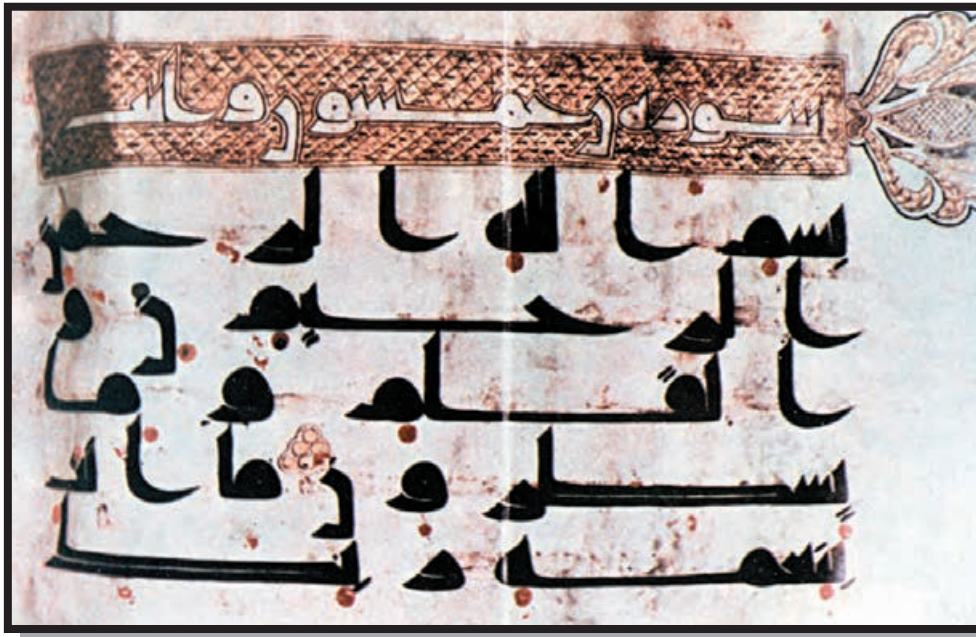 سورة ن خمسون
بسم الله الرحمن
الرحيم ن و
القلم وما
يسطرون ما انت
بنعمة ربك